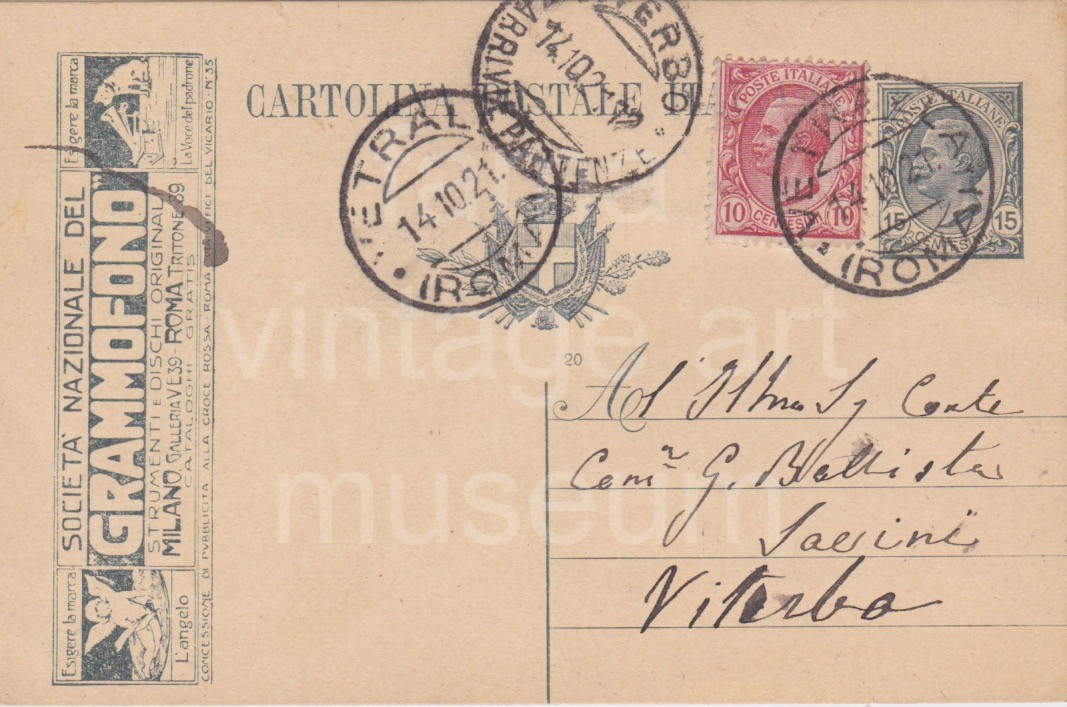 CARTOLINA POSTALE ITA
VITERBO
14.10.21.19
ARRIVI E PARTENZE
VETRALLA
14.10.21.
(ROMA)
POSTE ITALIANE
10 CENTESIMI 10
VETRALLA
14.10.21.
(ROMA)
POSTE ITALIANE
15 CENTESIMI 15
Esigere la marca
La Voce del padrone
SOCIETA' NAZIONALE DEL
"GRAMMOFONO"
STRUMENTI E DISCHI ORIGINALI
MILANO GALLERIA V.E.39 - ROMA TRITONE 89
CATALOGHI GRATIS
Esigere la marca
L'angelo
CONCESSIONE DI PUBBLICITA ALLA CROCE ROSSA ROMA UFFICI DEL VICARIO - N. 35
20
Al Illmo Sg Conte
Comm G. Battista
Viterbo
vintage art
museum